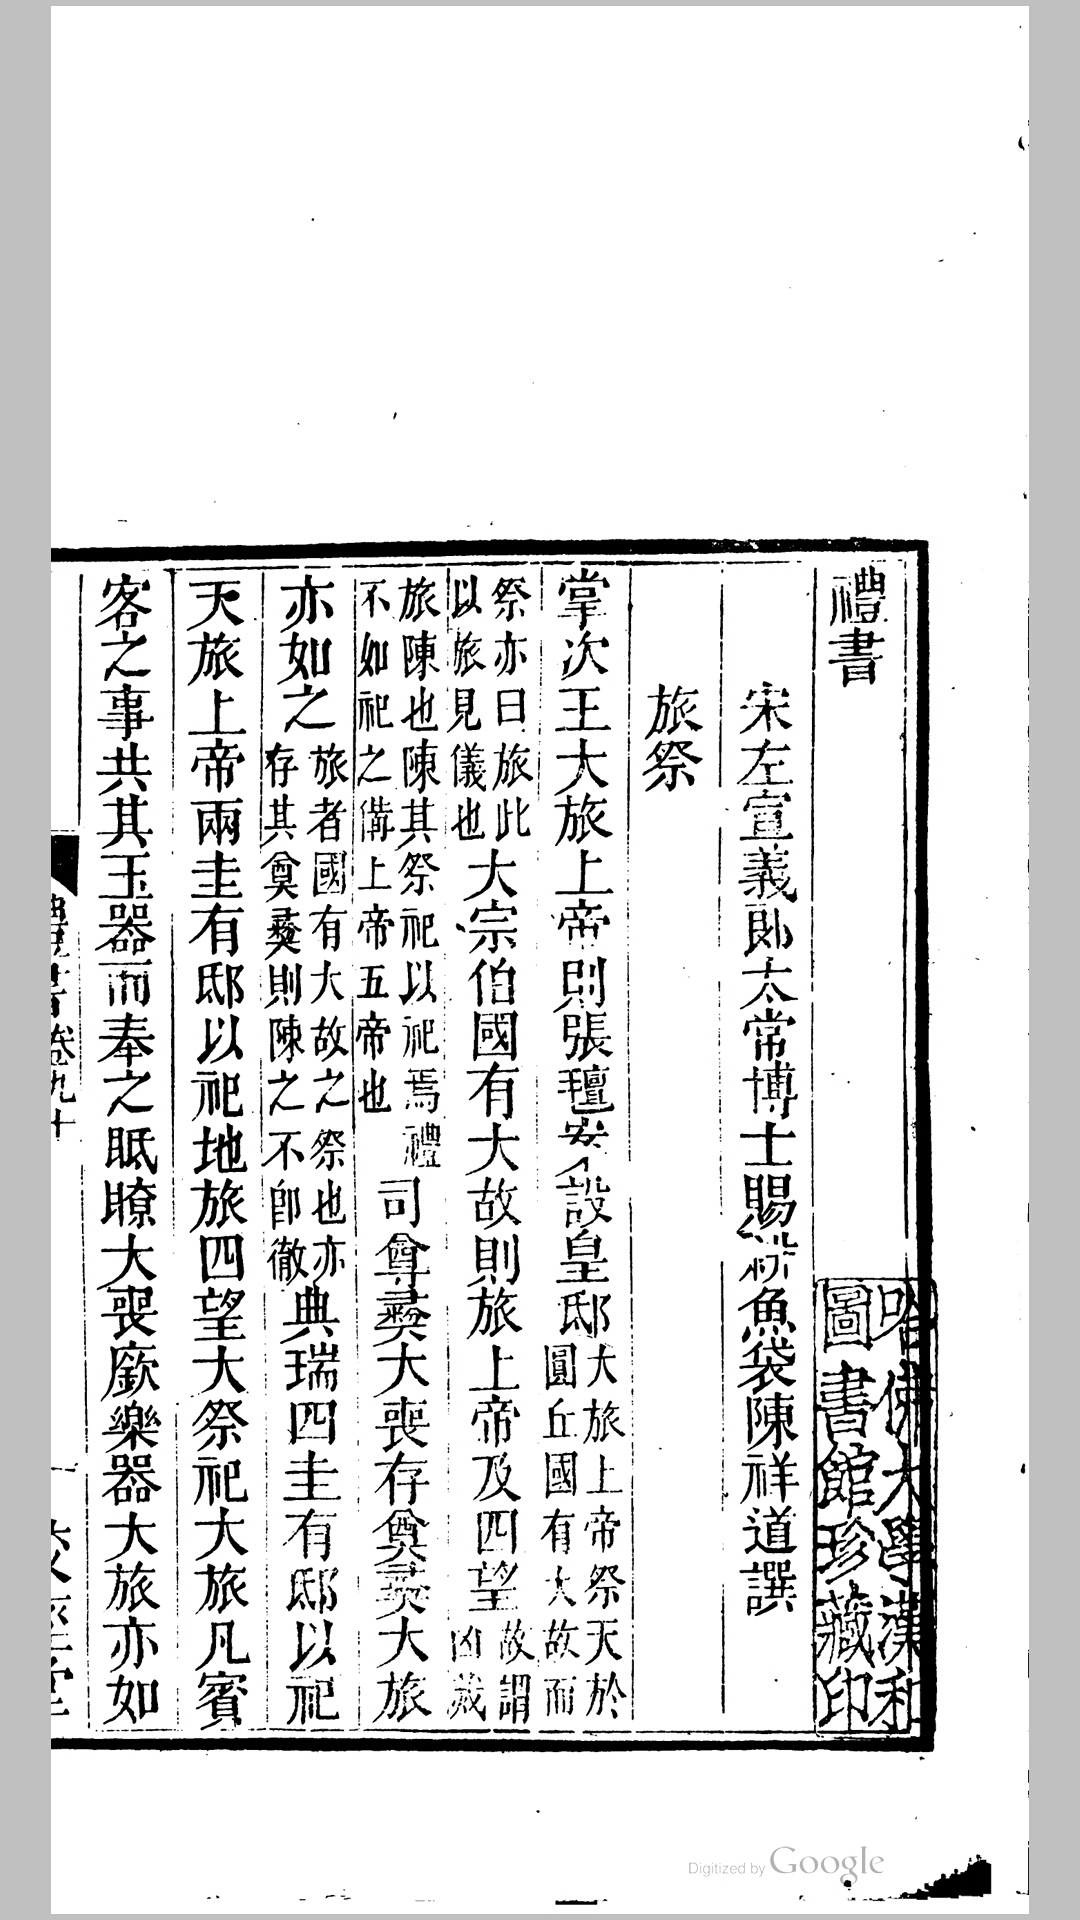 禮書
宋左宣義郎太常博士賜緋魚袋陳祥道譔
旅祭
掌次王大旅上帝則張氊案設皇邸大旅上帝祭天於圓丘國有大故而
祭亦曰旅此以旅見儀也大宗伯國有大故則旅上帝及四望故謂凶烖
旅陳也陳其祭祀以祀焉禮不如祀之備上帝五帝也司尊彝大喪存奠彝大旅
亦如之旅者國有大故之祭也亦存其奠彝則陳之不卽徹典瑞四圭有邸以祀
天旅上帝兩圭有邸以祀地旅四望大祭祀大旅凡賓
客之事共其玉器而奉之眡瞭大喪廞樂器大旅亦如
禮書卷九十
一
校經堂
哈佛大學漢和圖書館珍藏印
Digitized by Google